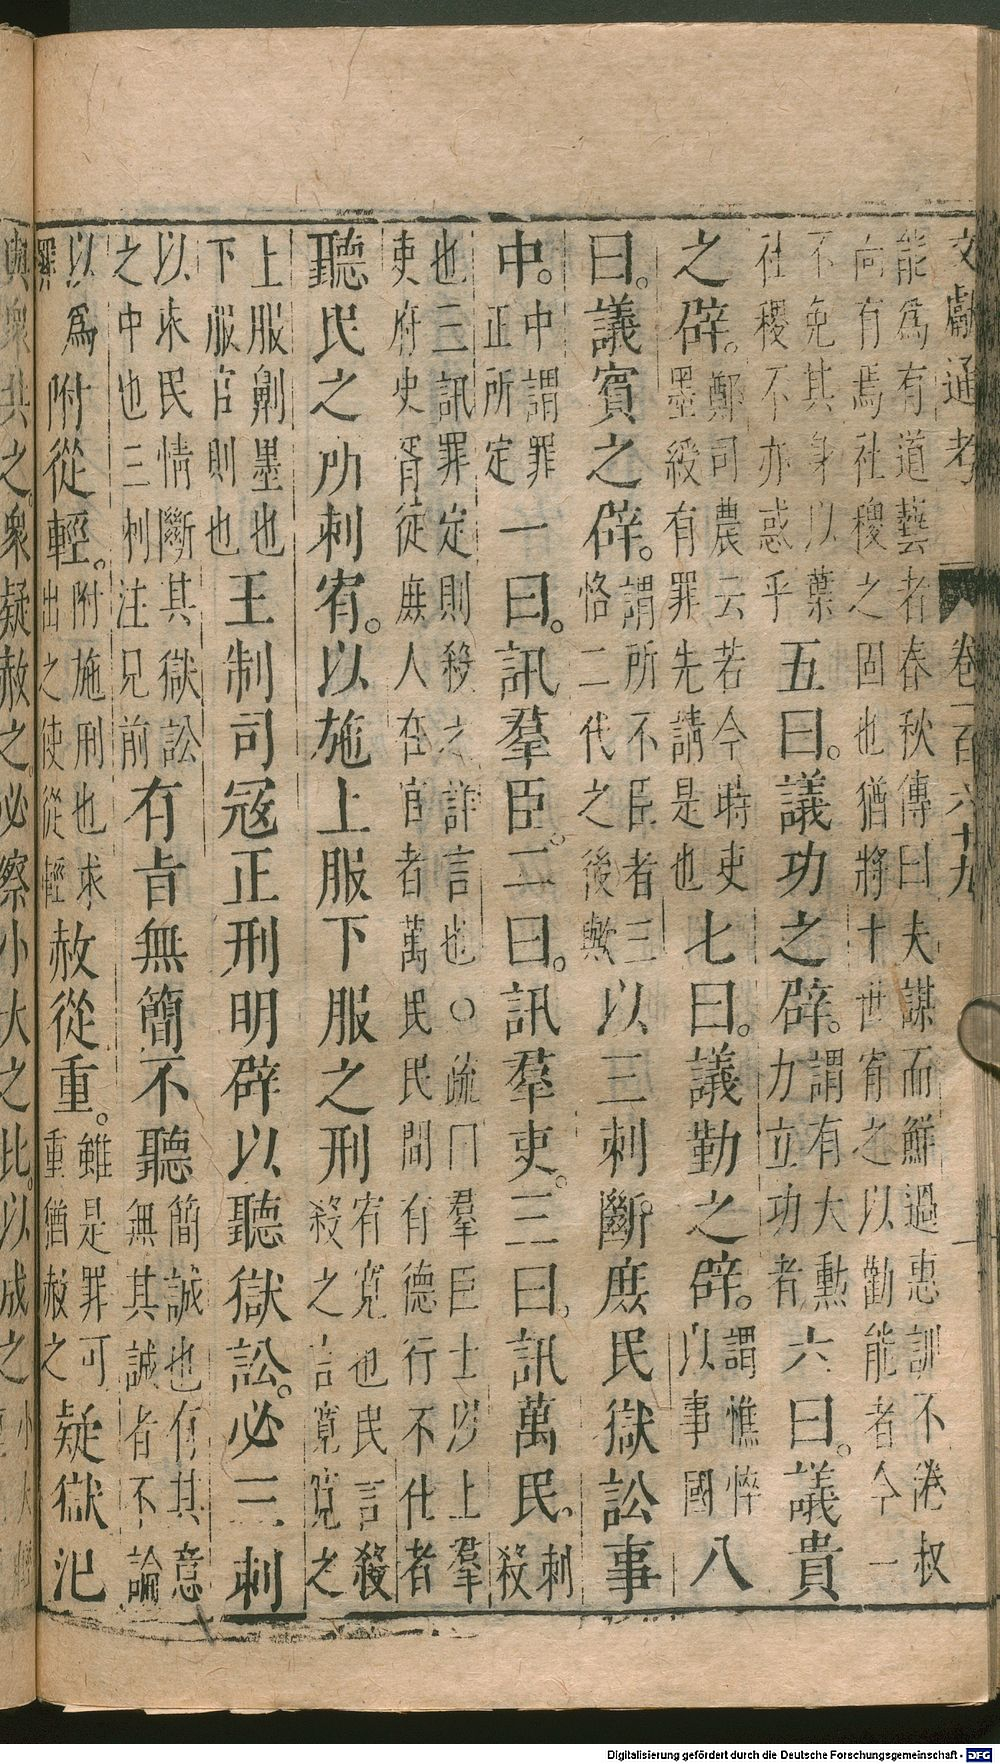 文獻通考 卷一百六十九 一
能爲有道藝者春秋傳曰夫謀而鮮過惠訓不倦叔
向有焉社稷之固也猶將十世宥之以勸能者今一
不免其身以棄
社稷不亦惑乎
五曰。議功之辟。
謂有大勳
力立功者
六曰。議貴
之辟。
鄭司農云若今時吏
墨綬有罪先請是也
七曰。議勤之辟。
謂憔悴
以事國
八
曰。議賓之辟。
謂所不臣者三
恪二代之後歟
以三刺斷庶民獄訟事
中。
中謂罪
正所定
一曰。訊羣臣。二曰。訊羣吏。三曰。訊萬民。
刺
殺
也三訊罪定則殺之訊言也○疏曰羣臣士以上羣
吏府史胥徒庶人在官者萬民民間有德行不仕者
聽民之所刺宥。以施上服下服之刑
宥寛也民言殺
殺之言寛寛之
上服劓墨也
下服宫則也
王制司冦正刑明辟以聽獄訟。必三刺
以求民情斷其獄訟
之中也三刺注見前
有旨無簡不聽
簡誠也有其意
無其誠者不論
以爲
罪
附從輕。
附施刑也求
出之使從輕
赦從重。
雖是罪可
重猶赦之
疑獄汜
與衆共之。衆疑赦之。必察小大之比。以成之